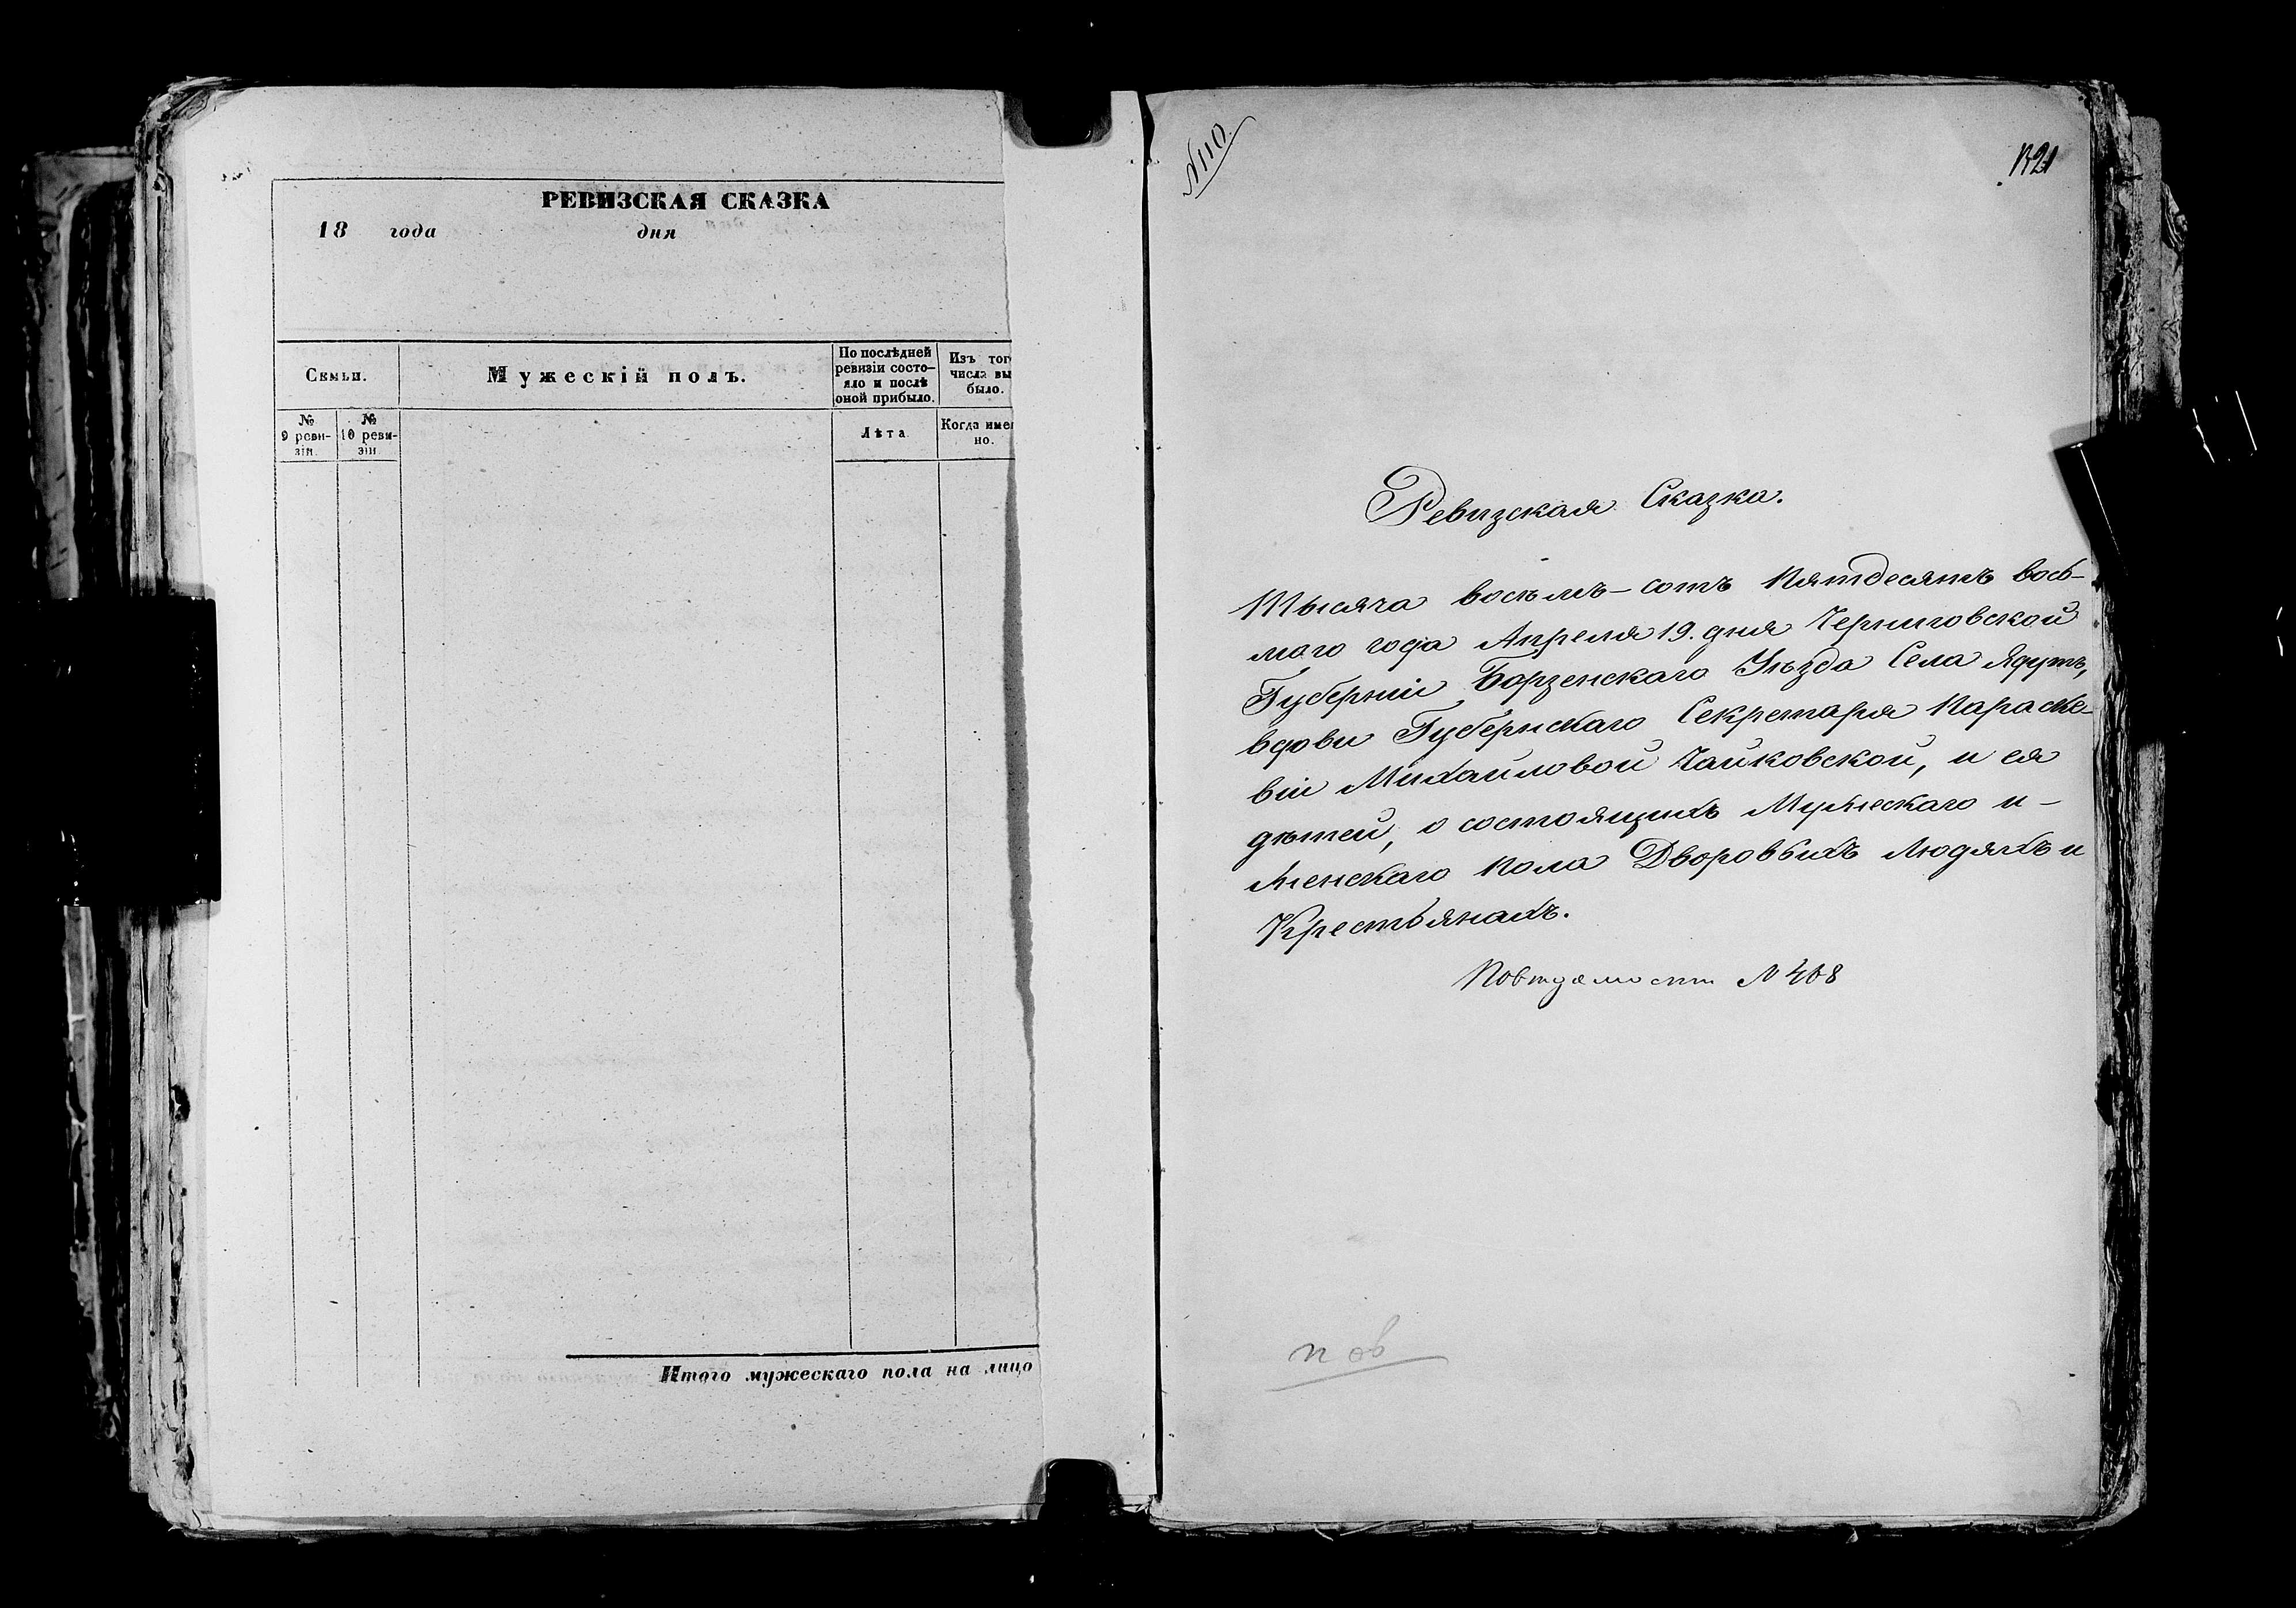 РЕВИЗСКАЯ СКАЗКА
18 года дня
Семьи.
Мужескій полъ.
По послѣдней
ревизіи состо-
яло и послѣ
оной прибыло.
Изъ тог
числа вы
было.
№
9 реви-
зіи.
№
10 реви-
зіи
Лѣта
Когда име
но.
Итого мужескаго пола на лицо
№110.
Ревизская Сказка.
Тысяча восемъ-сотъ Пятдесятъ вось-
маго года Апреля 19. дня Черниговской
Губерніи Борзенскаго Уѣзда Села Ядутъ,
вдовы Губернскаго Секретаря Параске-
віи Михайловой Чайковской, и ея
дѣтей, о состоящихъ Мужескаго и-
женскаго Пола Дворовыхъ Людяхъ и
Крестьянахъ.